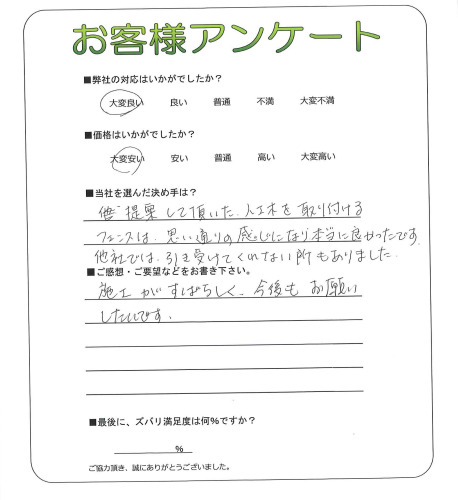 お客様アンケート
■弊社の対応はいかがでしたか？
大変良い 良い 普通 不満 大変不満
■価格はいかがでしたか？
大変安い 安い 普通 高い 大変高い
■当社を選んだ決め手は？
提案して頂いた、人工木を取り付ける
フェンスは、思い通りの感じになり本当に良かったです
他社では、引き受けてくれない所もありました。
■ご感想・ご要望などをお書き下さい。
施工がすばらしく、今後もお願い
したいです。
■最後に、ズバリ満足度は何％ですか？
％
ご協力頂き、誠にありがとうございました。